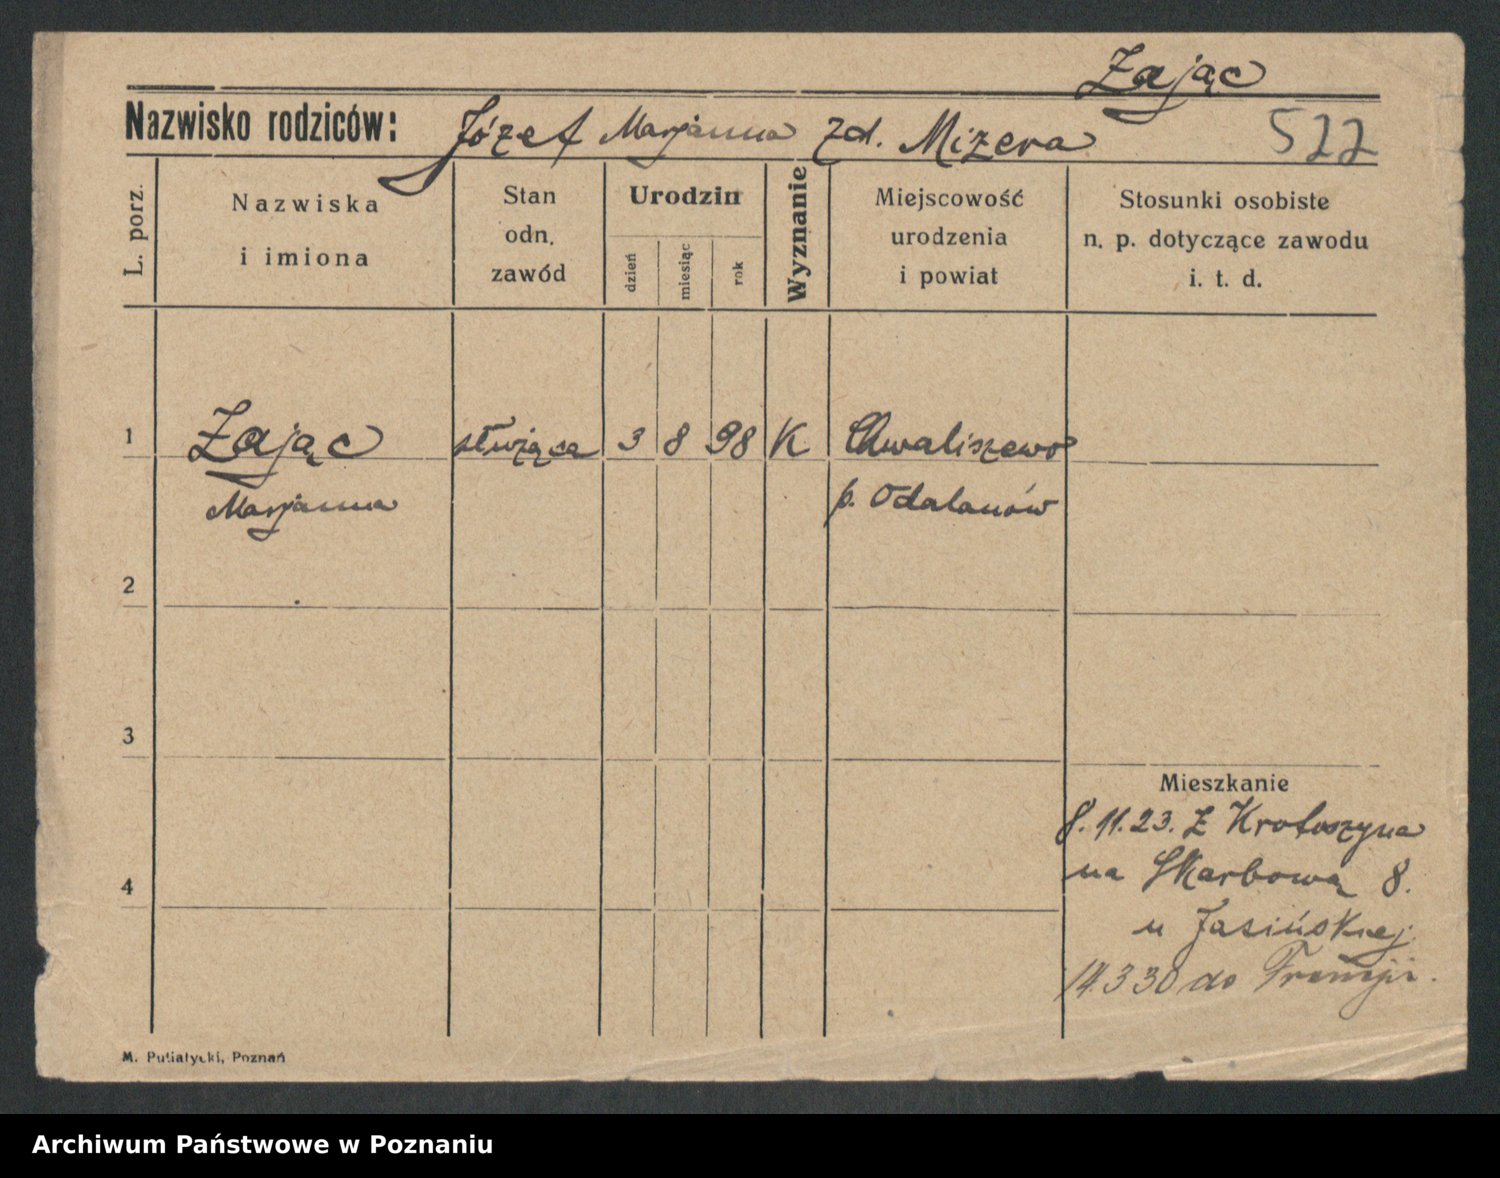 Zając
Nazwisko rodziców: Józef Marjanna zd. Mizera 522
L. porz.
Nazwiska
i imiona
Stan
odn.
zawód
Urodzin
dzień
miesiąc
rok
Wyznanie
Miejscowość
urodzenia
i powiat
Stosunki osobiste
n. p. dotyczące zawodu
i. t. d.
1 Zając służąca 3 8 98 K Chwaliszewo
Marjanna p. Odalanów
2
3
Mieszkanie
8.11.23. Z Krotoszyna
na Skarbową 8.
4
u Jasińskiej
14.3 30 do Francji.
M. Putiatycki, Poznań
Archiwum Państwowe w Poznaniu